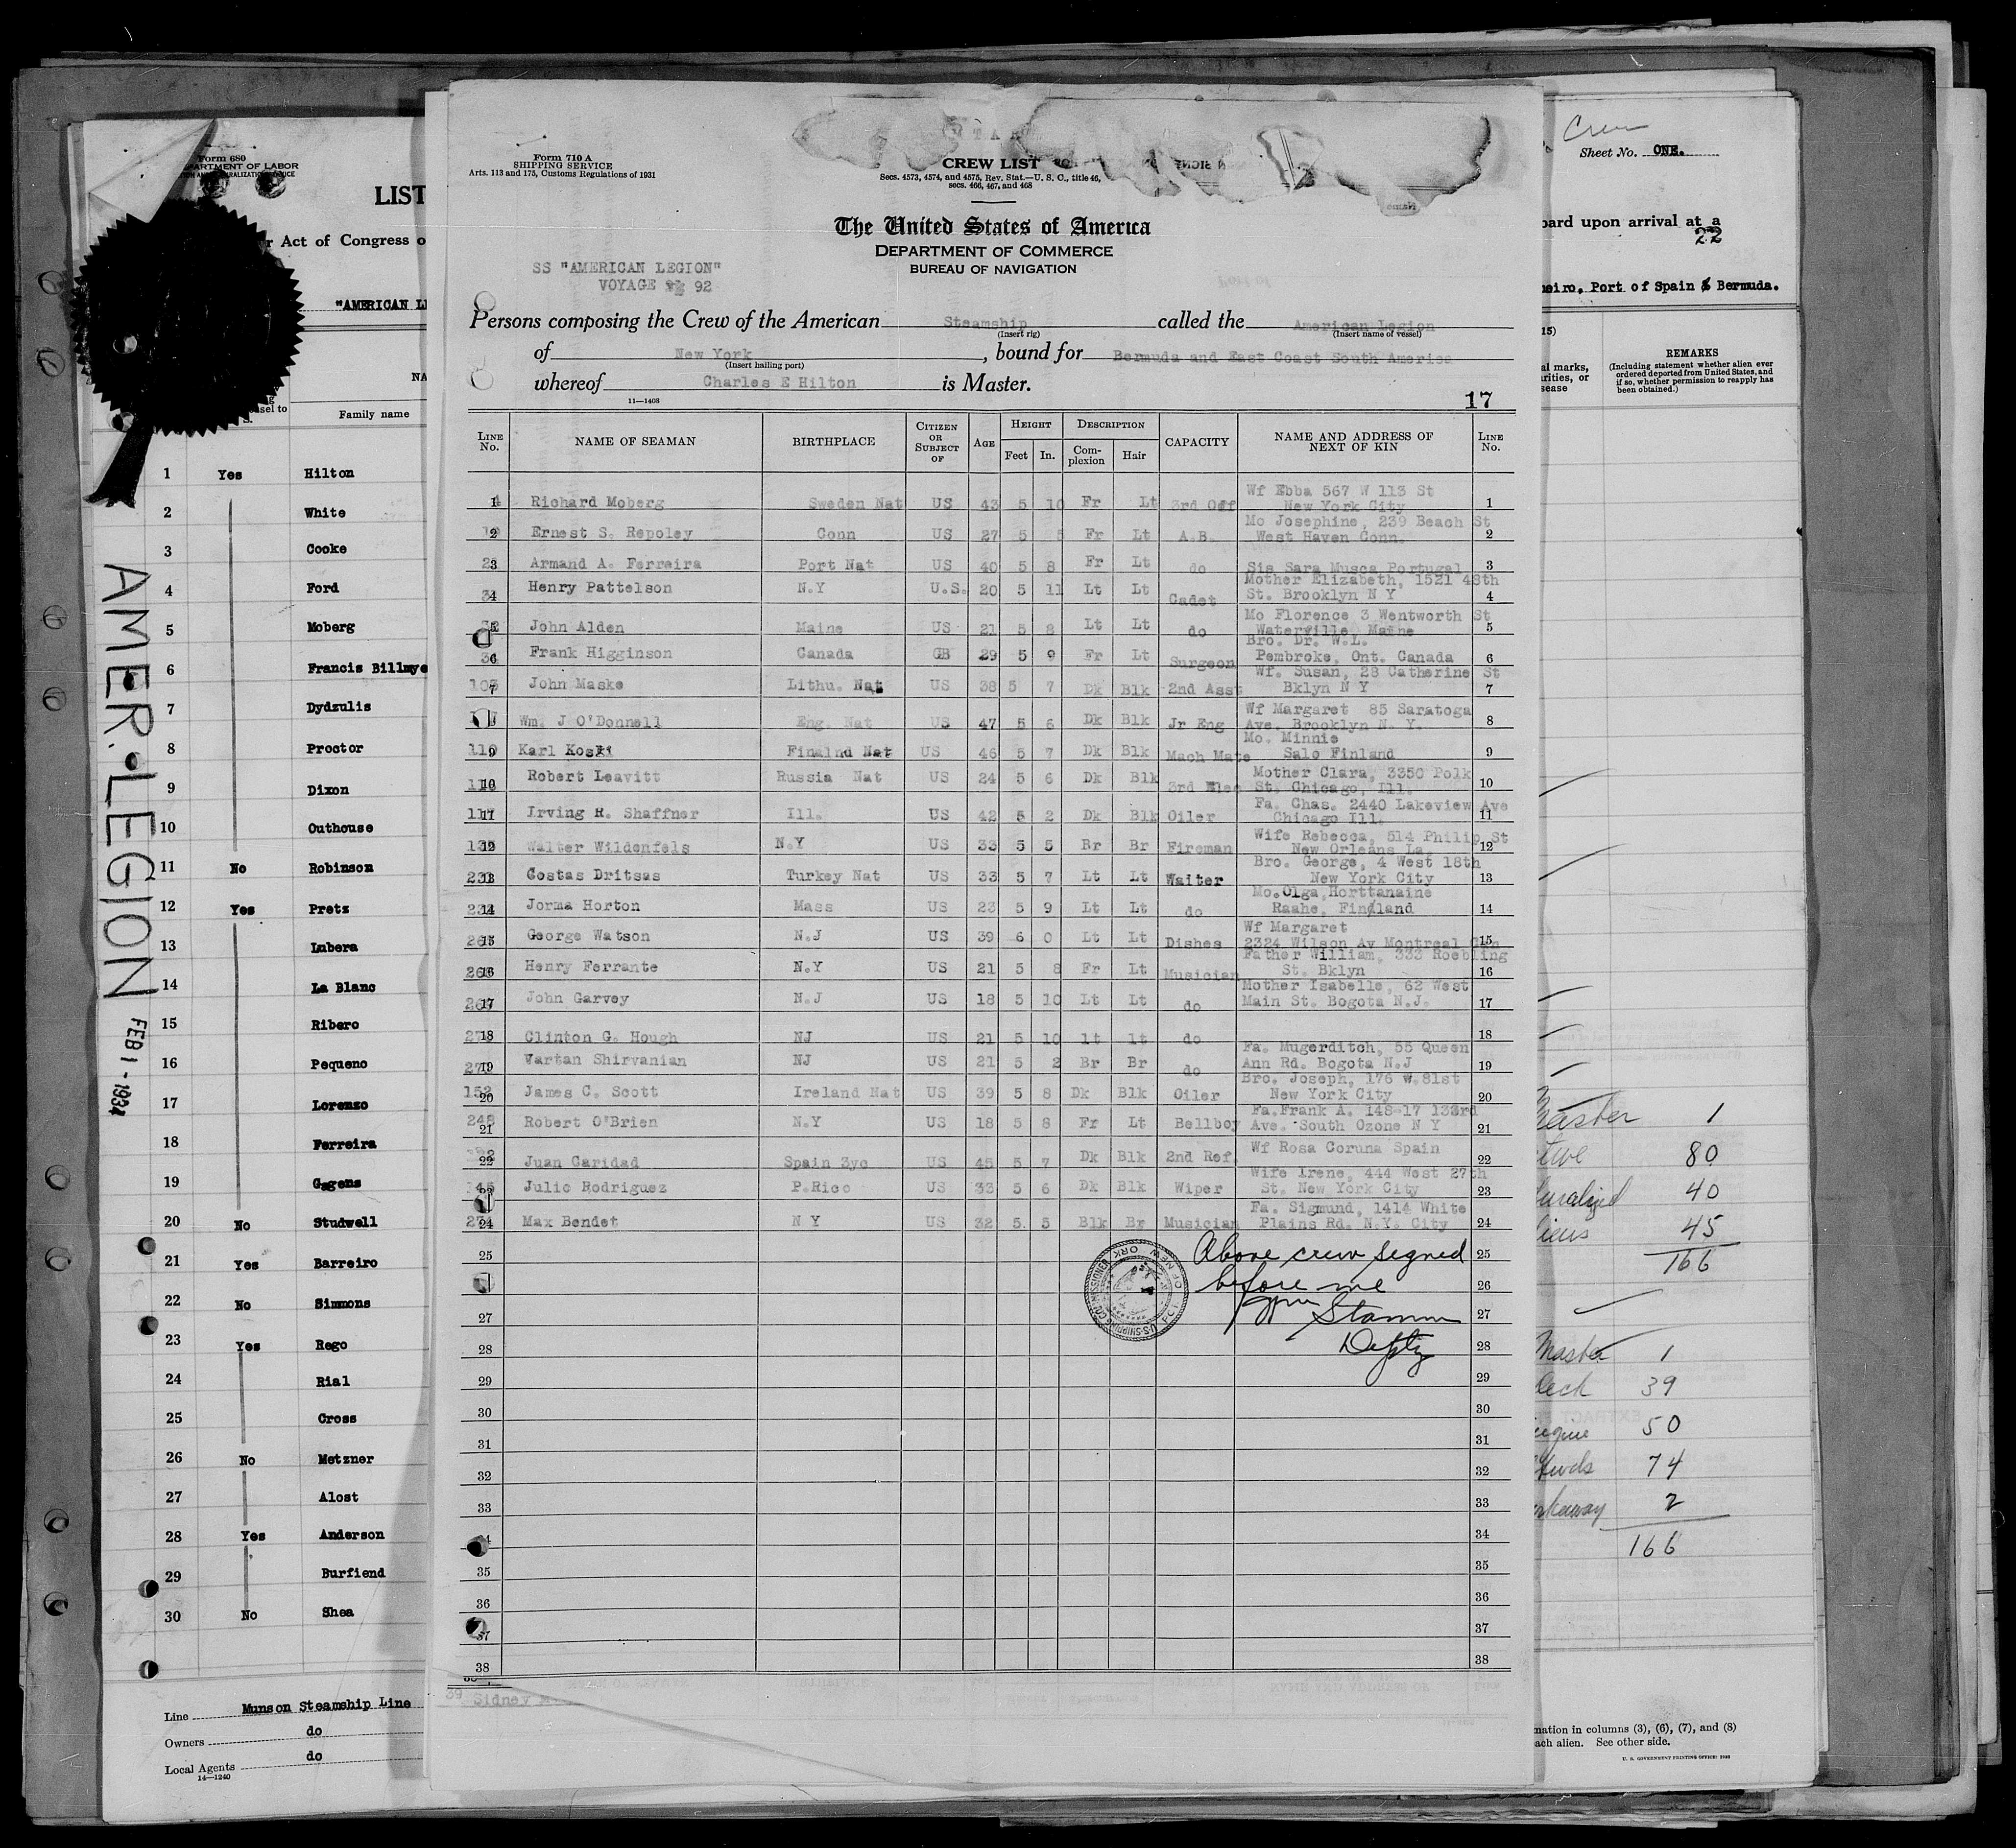 Form 680
DEPARTMENT OF LABOR
LIST
Act of Congress o
"AMERICAN LE
NA
Family name
1 Yes Hilton
2 White
3 Cooke
4 Ford
5 Moberg
6 Francis Billmye
7 Dydzulis
8 Proctor
9 Dixon
10 Outhouse
11 No Robinson
12 Yes Pretz
13 Lubera
14 La Blanc
15 Ribero
16 Pequeno
17 Lorenzo
18 Ferreira
19 Gagens
20 No Studwell
21 Yes Barreiro
22 No Simmons
23 Yes Rego
24 Rial
25 Cross
26 No Metzner
27 Alost
28 Yes Anderson
29 Burfiend
30 No Shea
Line Munson Steamship Line
Owners do
Local Agents do
14—1240
AMER. LEGION FEB 1 - 1934
Form 710 A
SHIPPING SERVICE
Arts. 113 and 175, Customs Regulations of 1931
CREW LIST
Secs. 4573, 4574, and 4575, Rev. Stat.—U. S. C., title 46,
secs. 466, 467, and 468
The United States of America
DEPARTMENT OF COMMERCE
BUREAU OF NAVIGATION
SS "AMERICAN LEGION"
VOYAGE 92
Persons composing the Crew of the American Steamship called the American Legion
(Insert rig) (Insert name of vessel)
of New York, bound for Bermuda and East Coast South America
(Insert hailing port)
whereof Charles E Hilton is Master.
11—1408
17
LINE No. NAME OF SEAMAN BIRTHPLACE CITIZEN OR SUBJECT OF AGE HEIGHT Feet In. DESCRIPTION Complexion Hair CAPACITY NAME AND ADDRESS OF NEXT OF KIN LINE No.
1 Richard Moberg Sweden Nat US 43 5 10 Fr Lt 3rd Off Wf Ebba 567 W 113 St New York City 1
2 Ernest S. Repoley Conn US 27 5 Fr Lt A.B. Mo Josephine, 239 Beach St West Haven Conn. 2
3 Armand A. Ferreira Port Nat US 40 5 8 Fr Lt do Sis Sara Musca Portugal 3
4 Henry Pattelson N.Y U.S. 20 5 11 Lt Lt Cadet Mother Elizabeth, 1521 48th St. Brooklyn N Y 4
5 John Alden Maine US 21 5 8 Lt Lt do Mo Florence 3 Wentworth St Waterville Maine 5
6 Frank Higginson Canada GB 29 5 9 Fr Lt Surgeon Bro. Dr. W.L. Pembroke, Ont. Canada 6
7 John Maske Lithu. Nat US 38 5 7 Dk Blk 2nd Asst Wf. Susan, 28 Catherine St Bklyn N Y 7
Wm. J O'Donnell Eng. Nat US 47 5 6 Dk Blk Jr Eng Wf Margaret 85 Saratoga Ave. Brooklyn N. Y. 8
9 Karl Koski Finalnd Nat US 46 5 7 Dk Blk Mach Mate Mo. Minnie Salo Finland 9
10 Robert Leavitt Russia Nat US 24 5 6 Dk Blk 3rd Elec Mother Clara, 3350 Polk St. Chicago, Ill. 10
11 Irving R. Shaffner Ill. US 42 5 2 Dk Blk Oiler Fa. Chas. 2440 Lakeview Ave Chicago Ill. 11
12 Walter Wildenfels N.Y US 33 5 5 Rr Br Fireman Wife Rebecca, 514 Philip St New Orleans La. 12
13 Costas Dritsas Turkey Nat US 33 5 7 Lt Lt Waiter Bro. George, 4 West 18th New York City 13
14 Jorma Horton Mass US 23 5 9 Lt Lt do Mo. Olga Horttanaine Raahe, Finland 14
15 George Watson N.J US 39 6 0 Lt Lt Dishes Wf Margaret 2324 Wilson Av Montreal Can 15
16 Henry Ferrante N.Y US 21 5 8 Fr Lt Musician Father William, 333 Roebling St. Bklyn 16
17 John Garvey N.J US 18 5 10 Lt Lt do Mother Isabelle, 62 West Main St. Bogota N.J. 17
18 Clinton G. Hough NJ US 21 5 10 lt lt do 18
19 Vartan Shirvanian NJ US 21 5 2 Br Br do Fa. Mugerditch, 55 Queen Ann Rd. Bogota N.J 19
152 20 James C. Scott Ireland Nat US 39 5 8 Dk Blk Oiler Bro. Joseph, 176 W.81st New York City 20
248 21 Robert O'Brien N.Y US 18 5 8 Fr Lt Bellboy Fa.Frank A. 148-17 133rd Ave. South Ozone N Y 21
22 Juan Caridad Spain 3yc US 45 5 7 Dk Blk 2nd Ref. Wf Rosa Coruna Spain 22
Julio Rodriguez P.Rico US 33 5 6 Dk Blk Wiper Wife Irene, 444 West 27th St. New York City 23
24 Max Bendet N Y US 32 5 5 Blk Br Musician Fa. Sigmund, 1414 White Plains Rd. N.Y. City 24
25 Above crew signed 25
before me 26
27 Stamm 27
28 Depty 28
29 29
30 30
31 31
32 32
33 33
34
35 35
36 36
37 37
38 38
39 Sidney
Crew
Sheet No. ONE.
oard upon arrival at a
22
neiro, Port of Spain & Bermuda.
15)
al marks,
rities, or
sease
REMARKS
(Including statement whether alien ever
ordered deported from United States, and
if so, whether permission to reapply has
been obtained.)
Master 1
tive 80
turalized 40
liens 45
166
Master 1
Deck 39
ngine 50
twds 74
rkaway 2
166
mation in columns (3), (6), (7), and (8)
ach alien. See other side.
U. S. GOVERNMENT PRINTING OFFICE: 1932